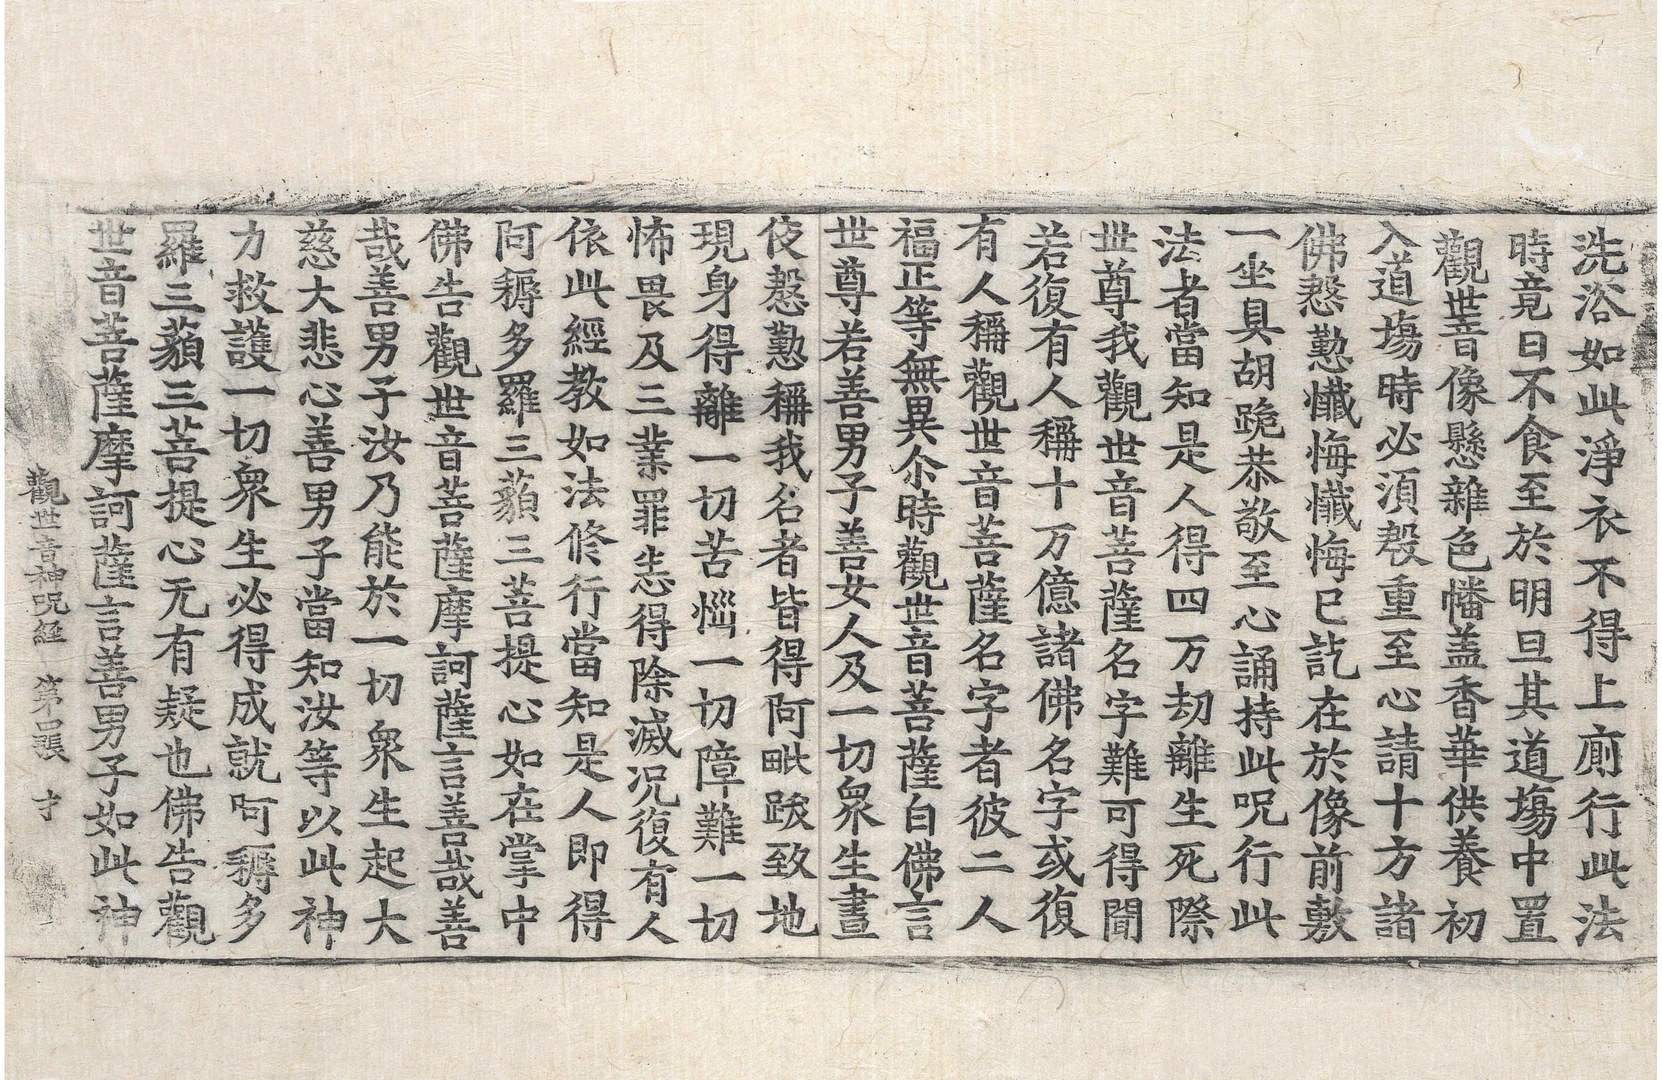 洗浴如此淨衣不得上廁行此法
時竟日不食至於明旦其道場中置
觀世音像懸雜色幡盖香華供養初
入道塲時必須殷重至心請十方諸
佛慇懃懺悔懺悔已訖在於像前敷
一坐具胡跪恭敬至心誦持此呪行此
法者當知是人得四万劫離生死際
世尊我觀世音菩薩名字難可得聞
若復有人稱十万億諸佛名字或復
有人稱觀世音菩薩名字者彼二人
福正等無異尒時觀世音菩薩白佛言
世尊若善男子善女人及一切衆生晝
夜慇懃稱我名者皆得阿毗跋致地
現身得離一切苦惱一切障難一切
怖畏及三業罪恙得除滅况復有人
依此經教如法修行當知是人即得
阿耨多羅三藐三菩提心如在掌中
佛告觀世音菩薩摩訶薩言善哉善
哉善男子汝乃能於一切衆生起大
慈大悲心善男子當知汝等以此神
力救護一切衆生必得成就阿耨多
羅三藐三菩提心无有疑也佛告觀
世音菩薩摩訶薩言善男子如此神
觀世音神呪經 第四張 才